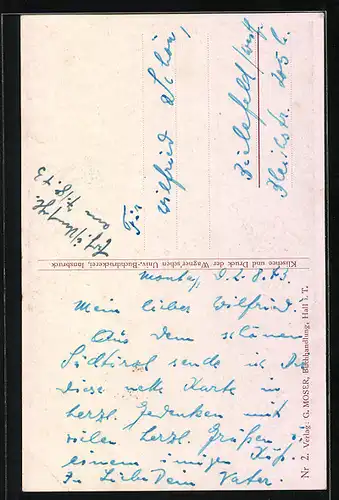 Montag, d. 2.8.43.
Mein lieber Wilfried.
Aus dem schönen
Südtirol sende ich Dir
diese nette Karte in
herzl. Gedenken mit
vielen herzl. Grüßen u.
einem innigen Kuß.
In Liebe Dein Vater.
Für
Wilfried Schön,
Bielefeld/Westf.
Kleiststr.
am 7.8.43
Klischee und Druck der Wagner'schen Univ.-Buchdruckerei, Innsbruck
Nr 2. Verlag: G. MOSER, Buchhandlung, Hall i. T.